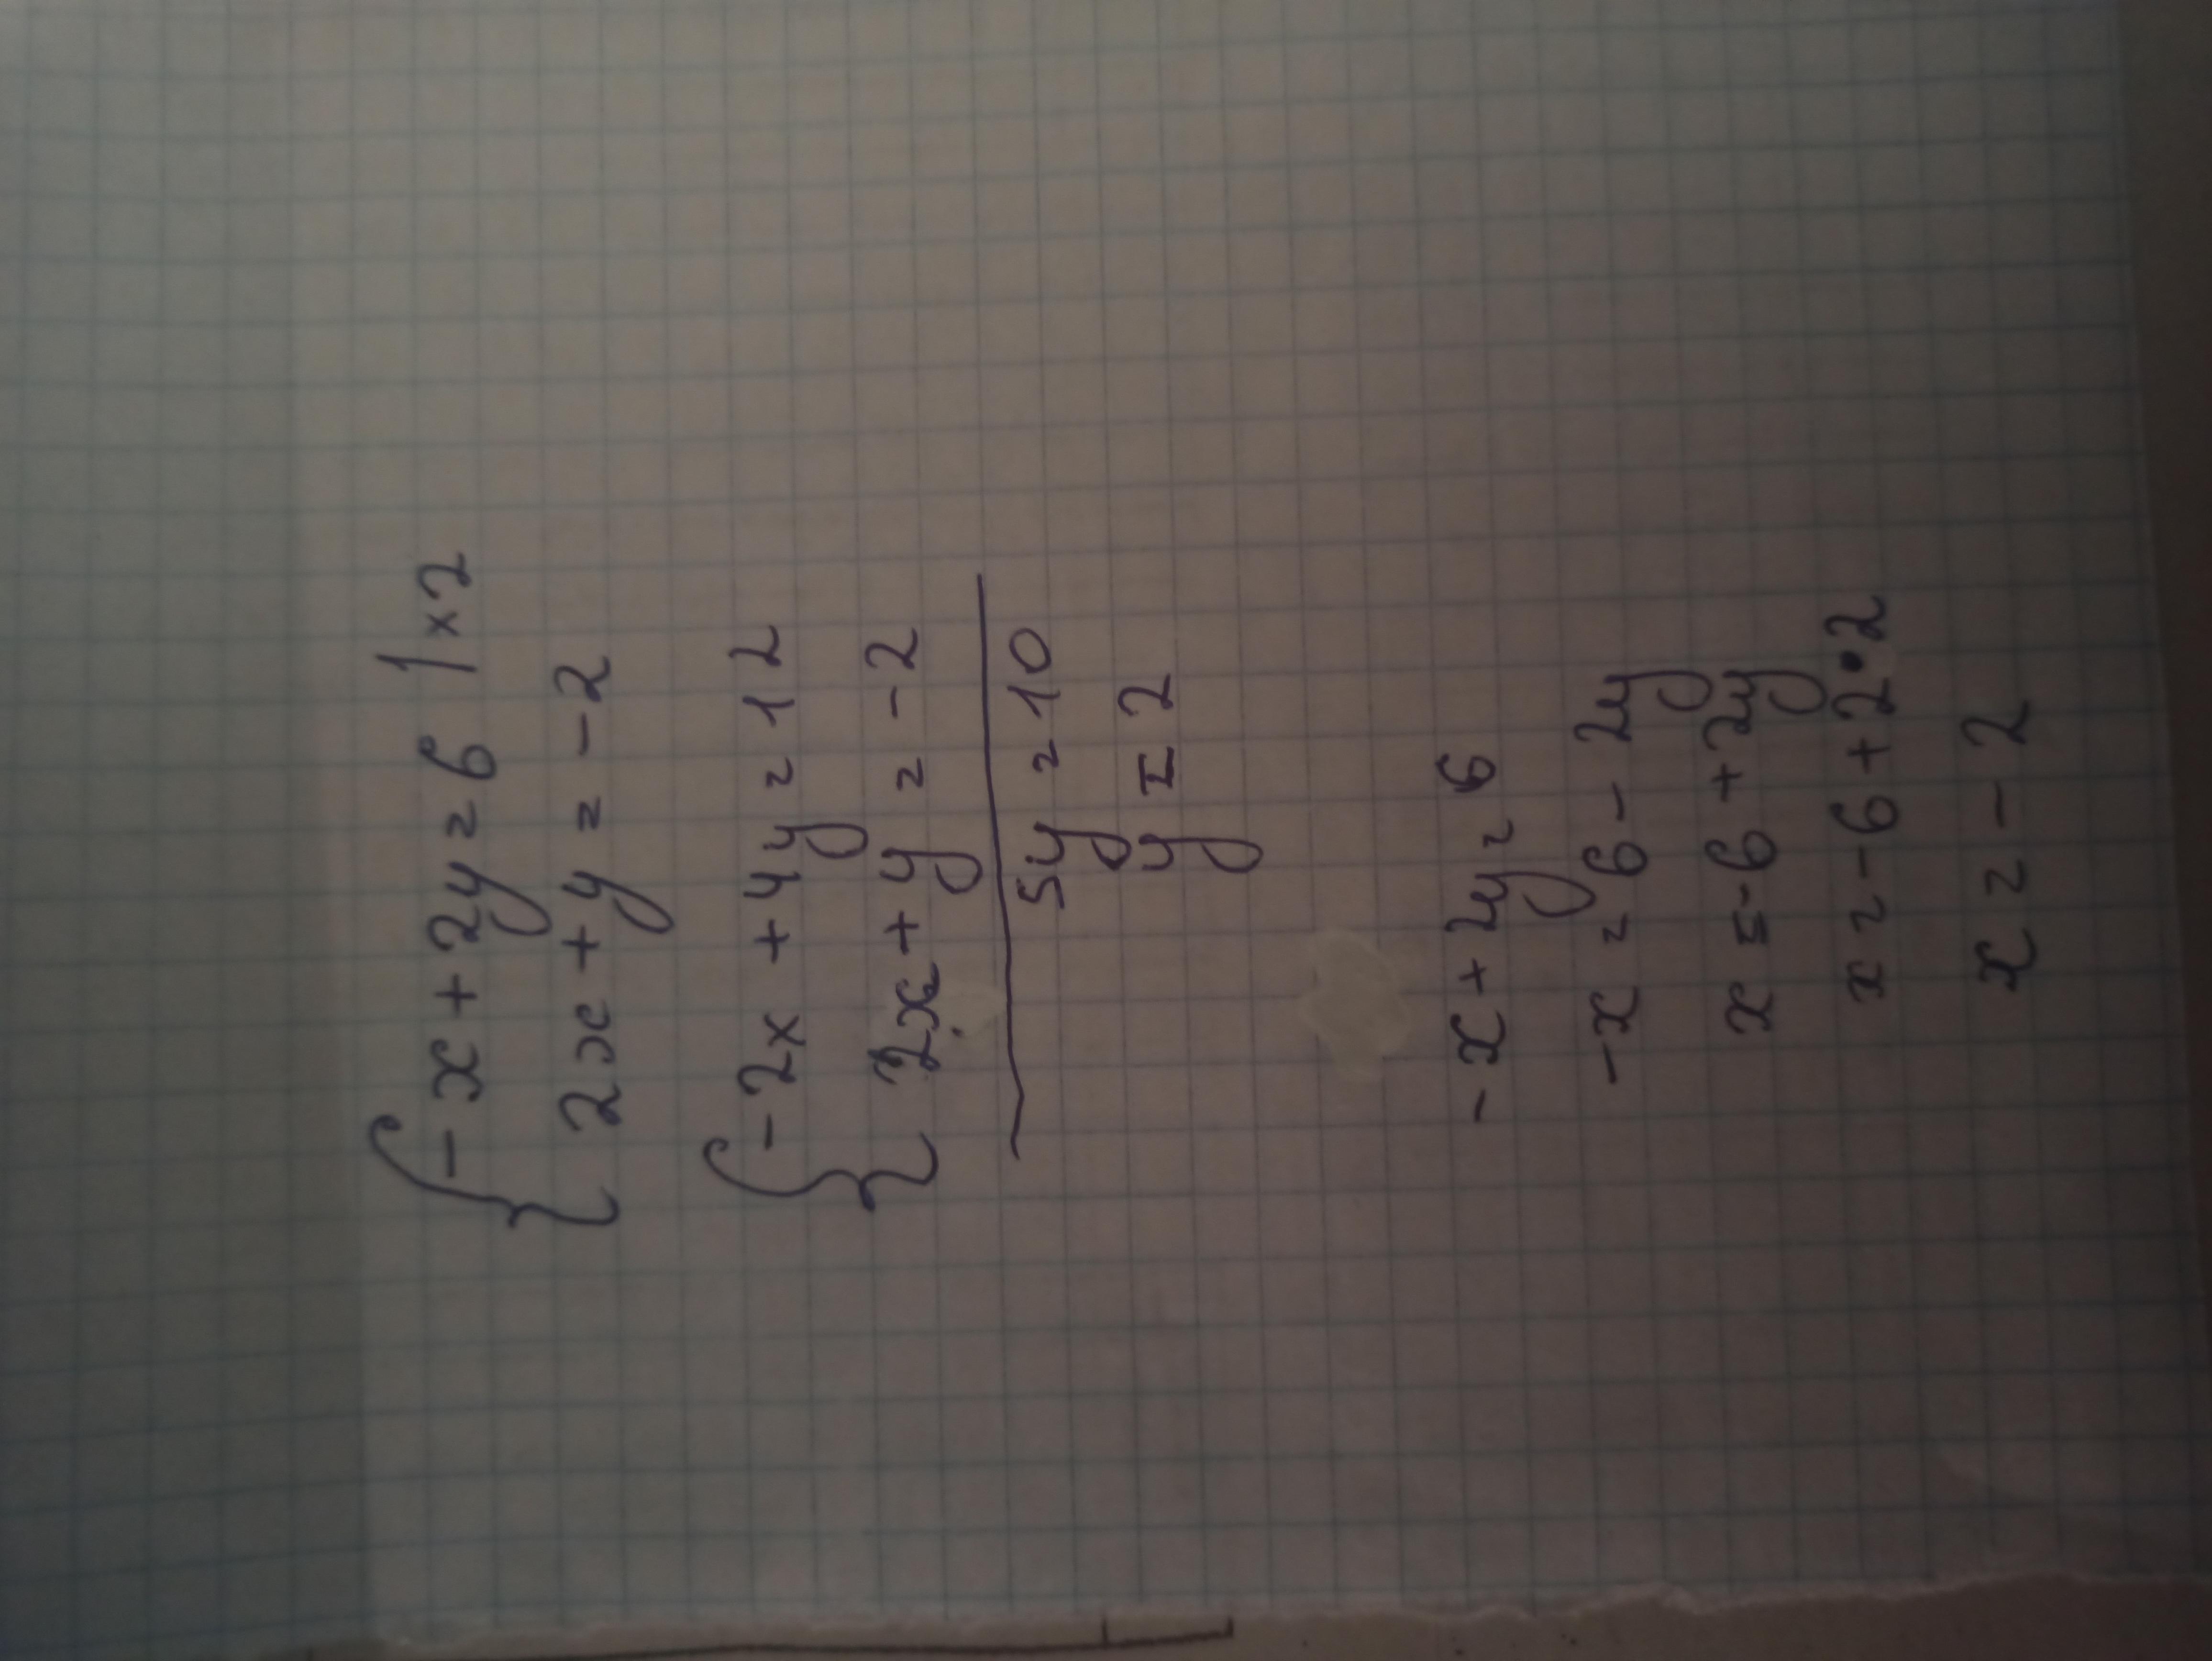 -x+2y=6 |×2
2x+y=-2
-2x+4y=12
2x+y=-2
5y=10
y=2
-x+2y=6
-x=6-2y
x=-6+2y
x=-6+2•2
x=-2